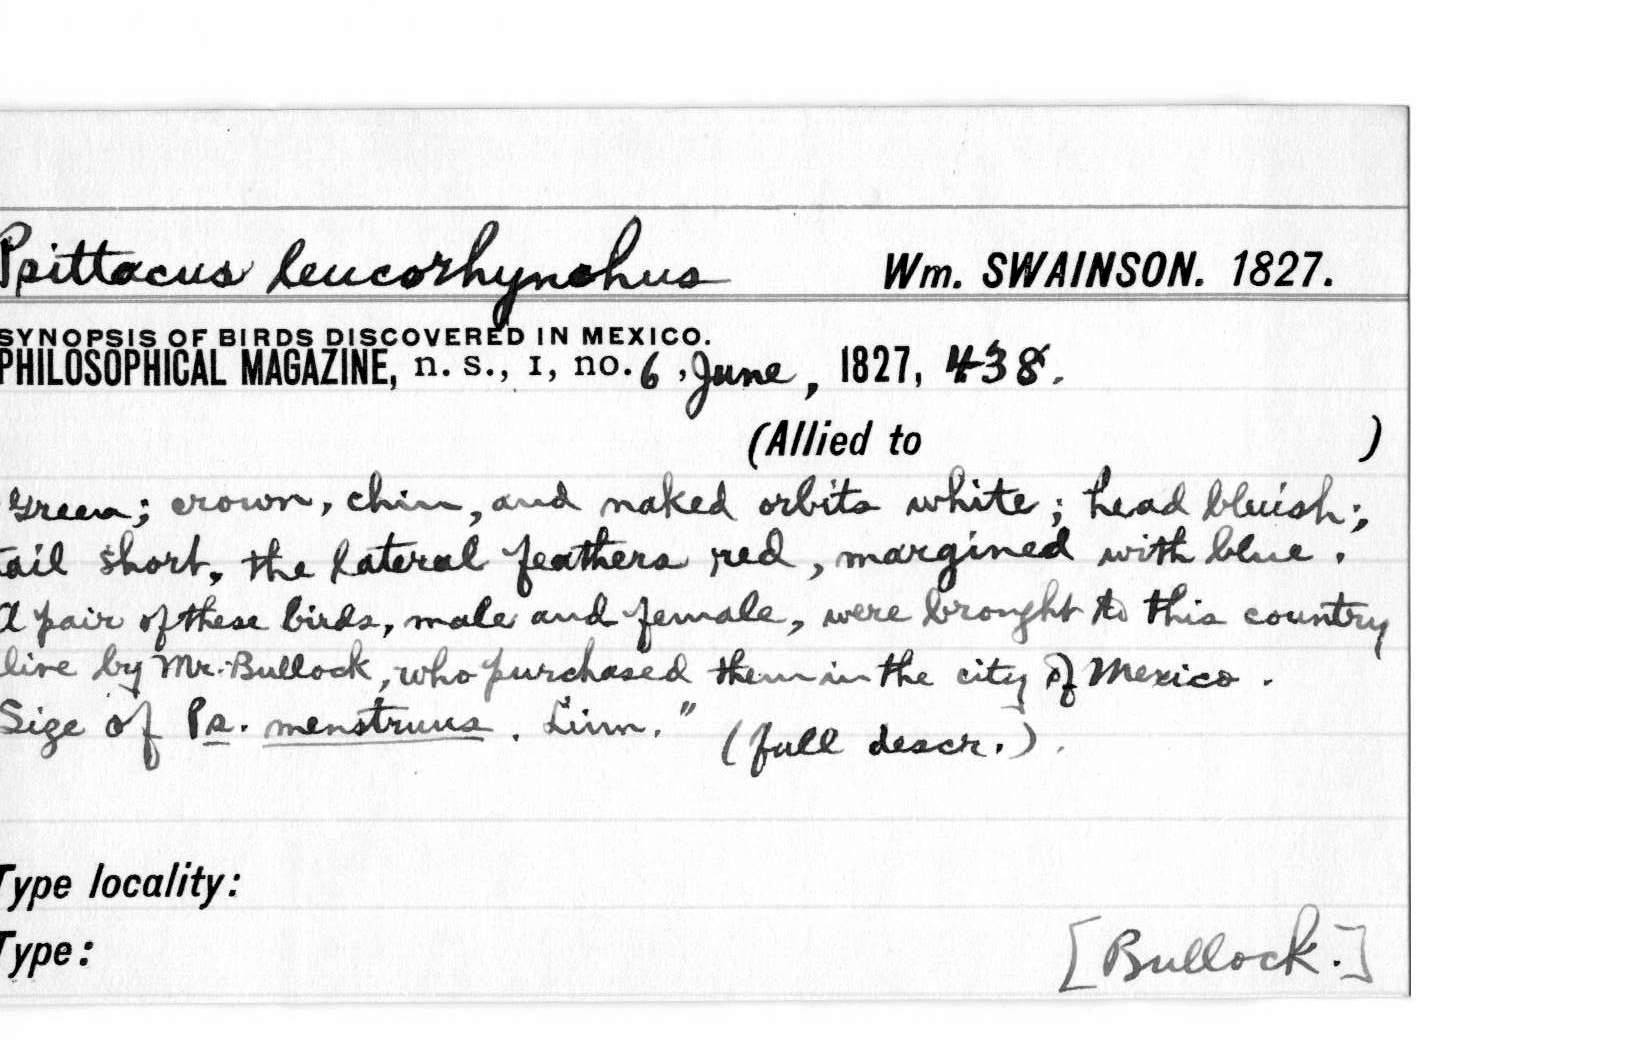 Psittacus leucorhynchus Wm. SWAINSON. 1827.
SYNOPSIS OF BIRDS DISCOVERED IN MEXICO.
PHILOSOPHICAL MAGAZINE, n. s., I, no. 6, June, 1827, 438.
(Allied to )
Green; crown, chin, and naked orbits white; head bluish;
tail short, the lateral feathers red, margined with blue.
A pair of these birds, male and female, were brought to this country
live by Mr. Bullock, who purchased them in the city of Mexico.
Size of Ps. menstruus. Linn." (full descr.).
Type locality:
Type: [Bullock.]